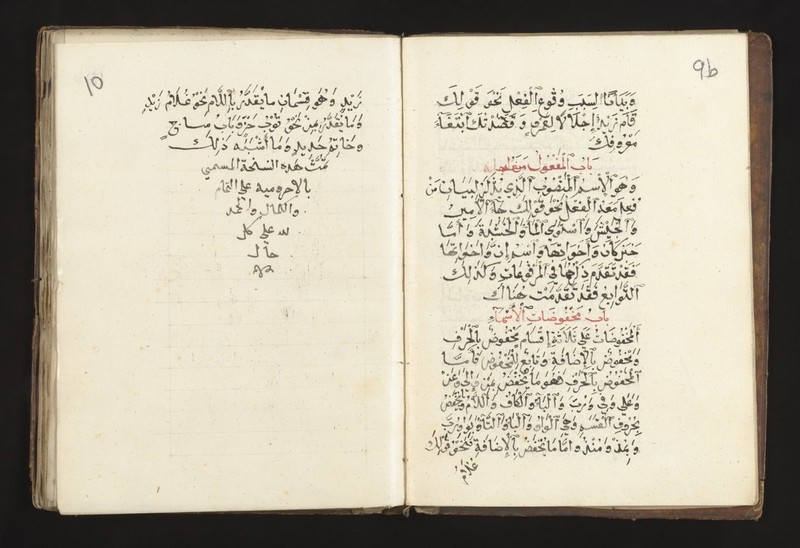 9b
وبيانا لسبب وقوع الفعل نحو قولك
قام زيد إجلالا لعمرو وقصدتك ابتغاء
معروفك
باب المفعول معه
وهو الاسم المنصوب الذي يذكر لبيان من
فعل معه الفعل نحو قولك جاء الأمير
والجيش واستوى الماء والخشبة وأما
خبر كان وأخواتها واسم إن وأخواتها
فقد تقدم ذكرهما في المرفوعات وكذلك
التوابع فقد تقدمت هناك
باب مخفوضات الأسماء
المخفوضات على ثلاثة أقسام مخفوض بالحرف
ومخفوض بالإضافة وتابع للمخفوض فأما
المخفوض بالحرف فهو ما يخفض بمن وإلى وعن
وعلى وفي ورب والباء والكاف واللام ويخفض
بحروف القسم وهي الواو والباء والتاء وبواو رب
وبمذ ومنذ وأما ما يخفض بالإضافة فنحو قولك
غلام
10
زيد وهو قسمان ما يقدر باللام نحو غلام زيد
وما يقدر بمن نحو ثوب خز وباب ساج
وخاتم حديد وما أشبه ذلك
تمت هذه النسخة المسمى
بالاجروميه على التمام
والكمال والحمد
لله على كل
حال